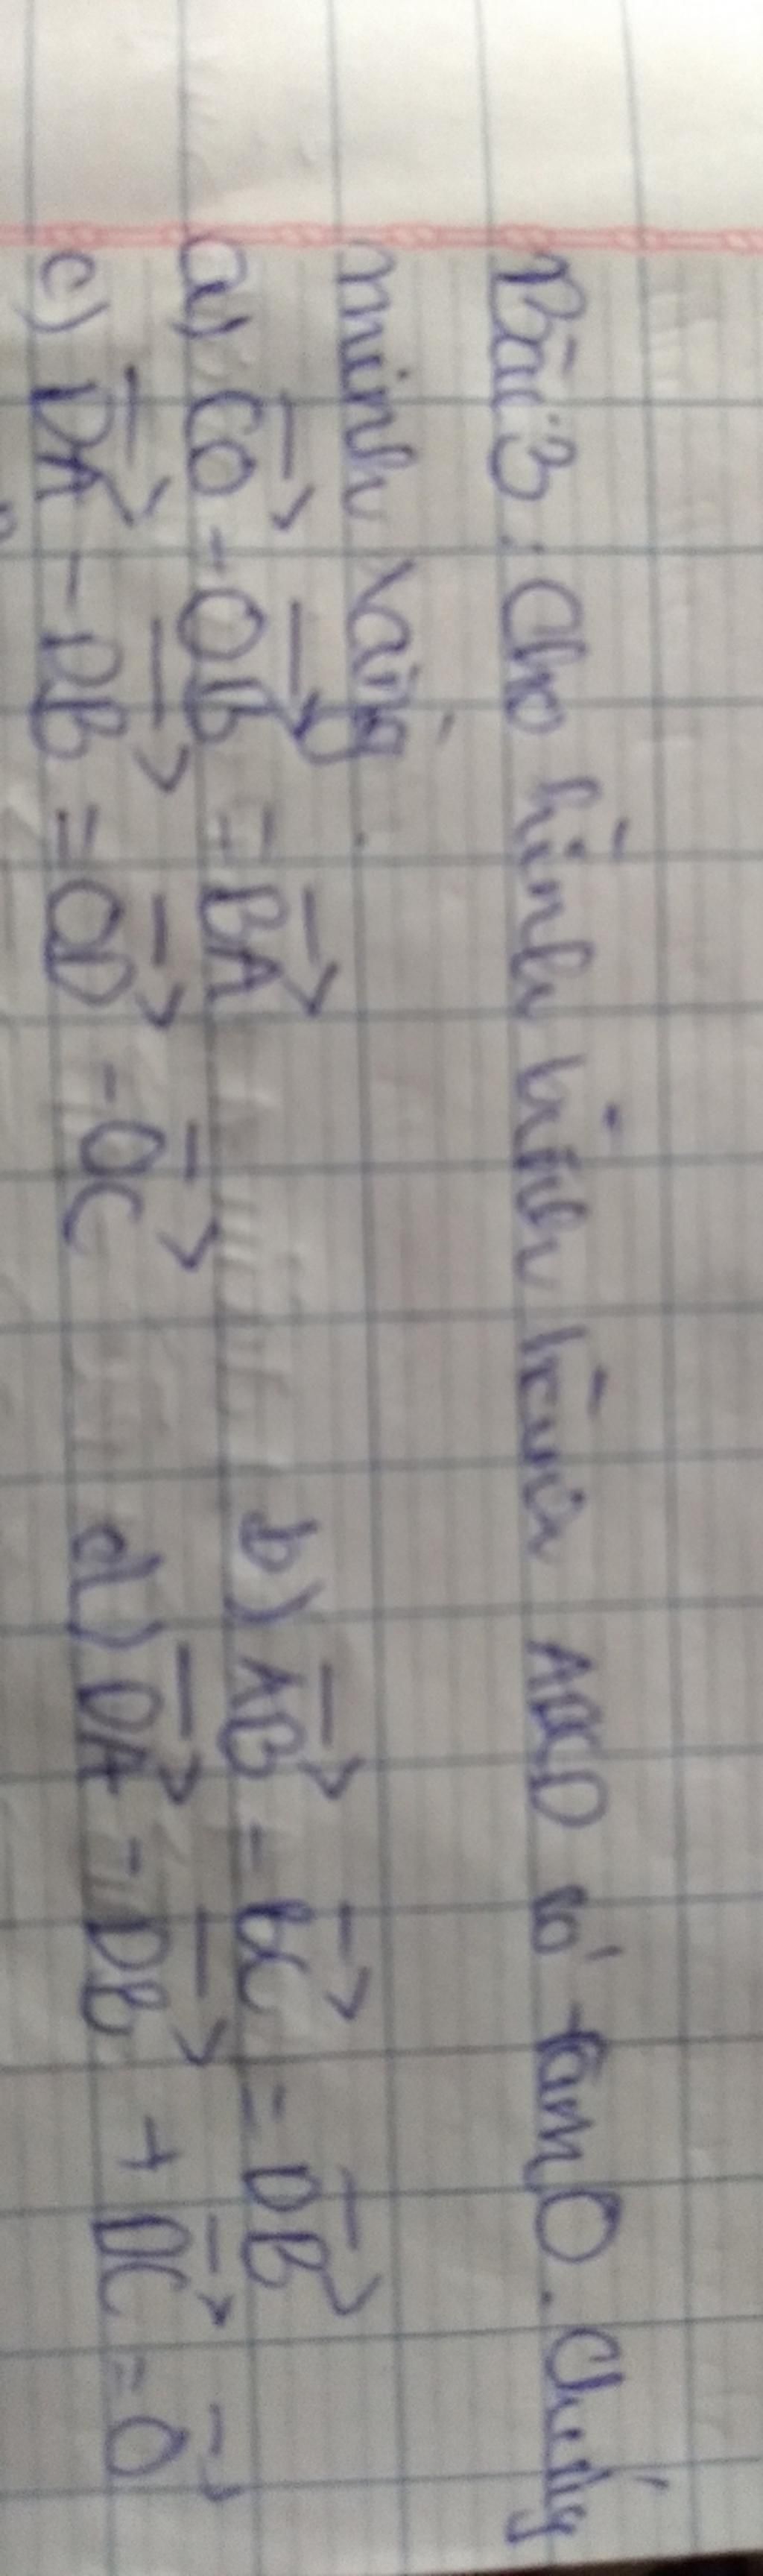 Bài 3: Cho hình bình hành ABCD có tâm O. Chứng
minh rằng:
a) \overrightarrow{CO} - \overrightarrow{OB} = \overrightarrow{BA} b) \overrightarrow{AB} - \overrightarrow{BC} = \overrightarrow{DB}
c) \overrightarrow{DA} - \overrightarrow{DB} = \overrightarrow{OD} - \overrightarrow{OC} d) \overrightarrow{DA} - \overrightarrow{DB} + \overrightarrow{DC} = \overrightarrow{0}